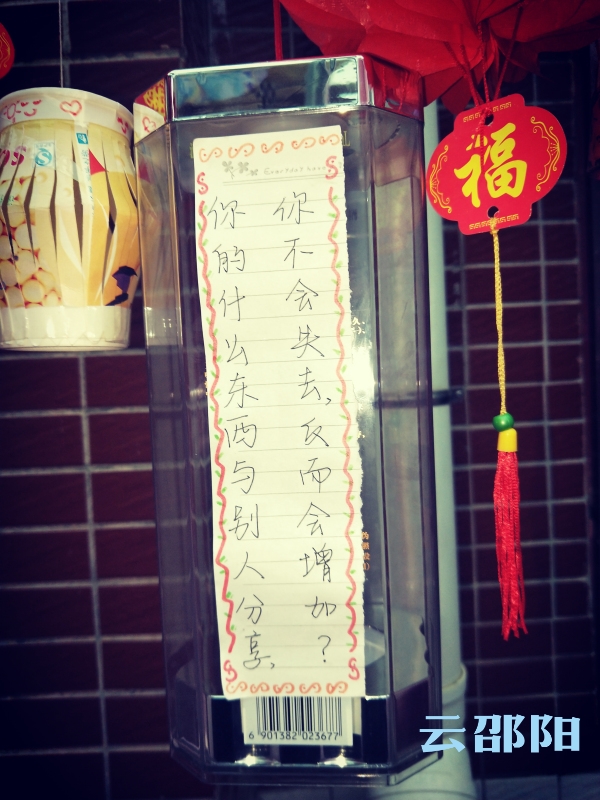 你的什么东西与别人分享,
你不会失去,反而会增加?
福
6 901382 023677
云邵阳